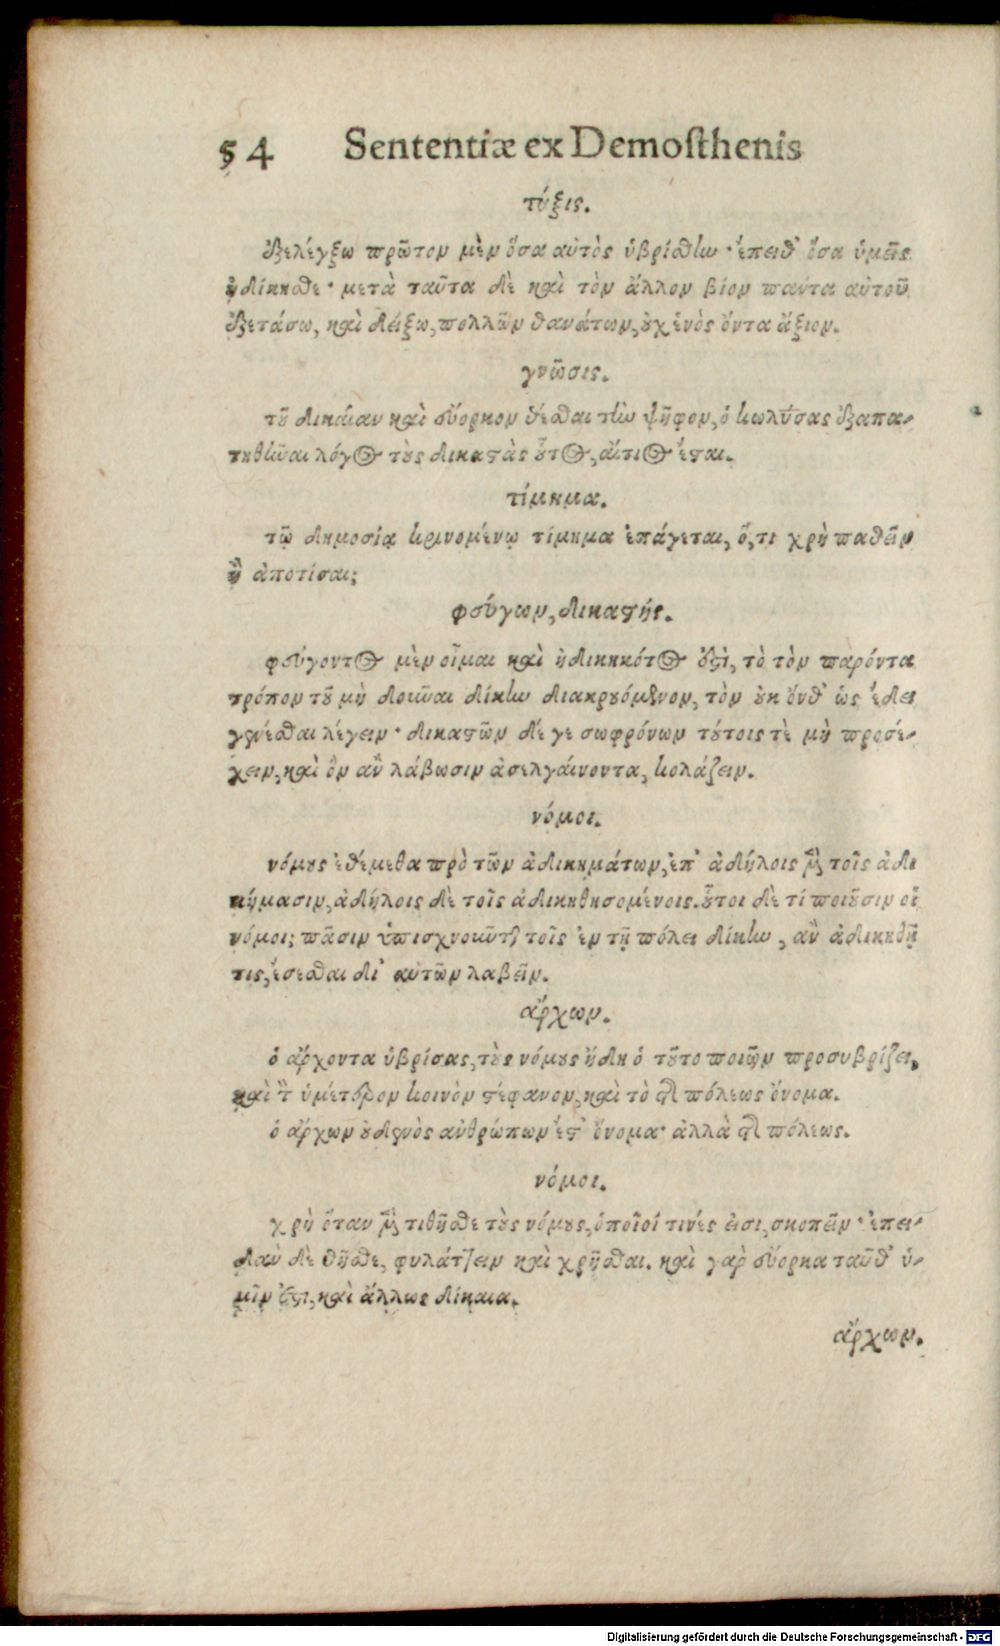 54 Sententiæ ex Demosthenis
τύξις.
ἐξελέγξω πρῶτον μὲν ὅσα αὐτὸς ὑβρίσθην· ἔπειθ' ὅσα ὑμεῖς
ἠδίκησθε· μετὰ ταῦτα δὲ καὶ τὸν ἄλλον βίον πάντα αὐτοῦ
ἐξετάσω, καὶ δείξω, πολλῶν θανάτων, οὐχ ἑνὸς ὄντα ἄξιον.
γνῶσις.
τοῦ δικαίαν καὶ εὔορκον θέσθαι τὴν ψῆφον, ὁ κωλύσας ἐξαπα-
τηθῆναι λόγος τοὺς δικαστὰς οὗτος, αἴτιος ἔσται.
τίμημα.
τῷ δημοσίᾳ κρινομένῳ τίμημα ἐπάγεται, ὅ,τι χρὴ παθεῖν
ἢ ἀποτίσαι;
φεύγων, δικαστής.
φεύγοντος μὲν οἶμαι καὶ ἠδικηκότος ἐστὶ, τὸ τὸν παρόντα
τρόπον τοῦ μὴ δοῦναι δίκην διακρουόμενον, τὸν οὐκ ὄνθ' ὡς ἔδει
γενέσθαι λέγειν· δικαστῶν δέ γε σωφρόνων τούτοις τὲ μὴ προσέ-
χειν, καὶ ὃν ἂν λάβωσιν ἀσελγαίνοντα, κολάζειν.
νόμοι.
νόμους ἐθέμεθα πρὸ τῶν ἀδικημάτων, ἐπ' ἀδήλοις μὲν τοῖς ἀδι
κήμασιν, ἀδήλοις δὲ τοῖς ἀδικηθησομένοις. οὗτοι δὲ τί ποιοῦσιν οἱ
νόμοι; πᾶσιν ὑπισχνοῦνται τοῖς ἐν τῇ πόλει δίκην, ἂν ἀδικηθῇ
τις, ἔσεσθαι δι' αὐτῶν λαβεῖν.
ἄρχων.
ὁ ἄρχοντα ὑβρίσας, τοὺς νόμους ἤδη ὁ τοῦτο ποιῶν προσυβρίζει,
καὶ τὸν ὑμέτερον κοινὸν στέφανον, καὶ τὸ τῆς πόλεως ὄνομα.
ὁ ἄρχων οὐδενὸς ἀνθρώπων ἔστ' ὄνομα· ἀλλὰ τῆς πόλεως.
νόμοι.
χρὴ ὅταν μὲν τιθῆσθε τοὺς νόμους, ὁποῖοί τινές εἰσι, σκοπεῖν· ἐπει-
δὰν δὲ θῆσθε, φυλάττειν καὶ χρῆσθαι. καὶ γὰρ εὔορκα ταῦθ' ὑ-
μῖν ἐστι, καὶ ἄλλως δίκαια.
ἄρχων.
Digitalisierung gefördert durch die Deutsche Forschungsgemeinschaft - DFG